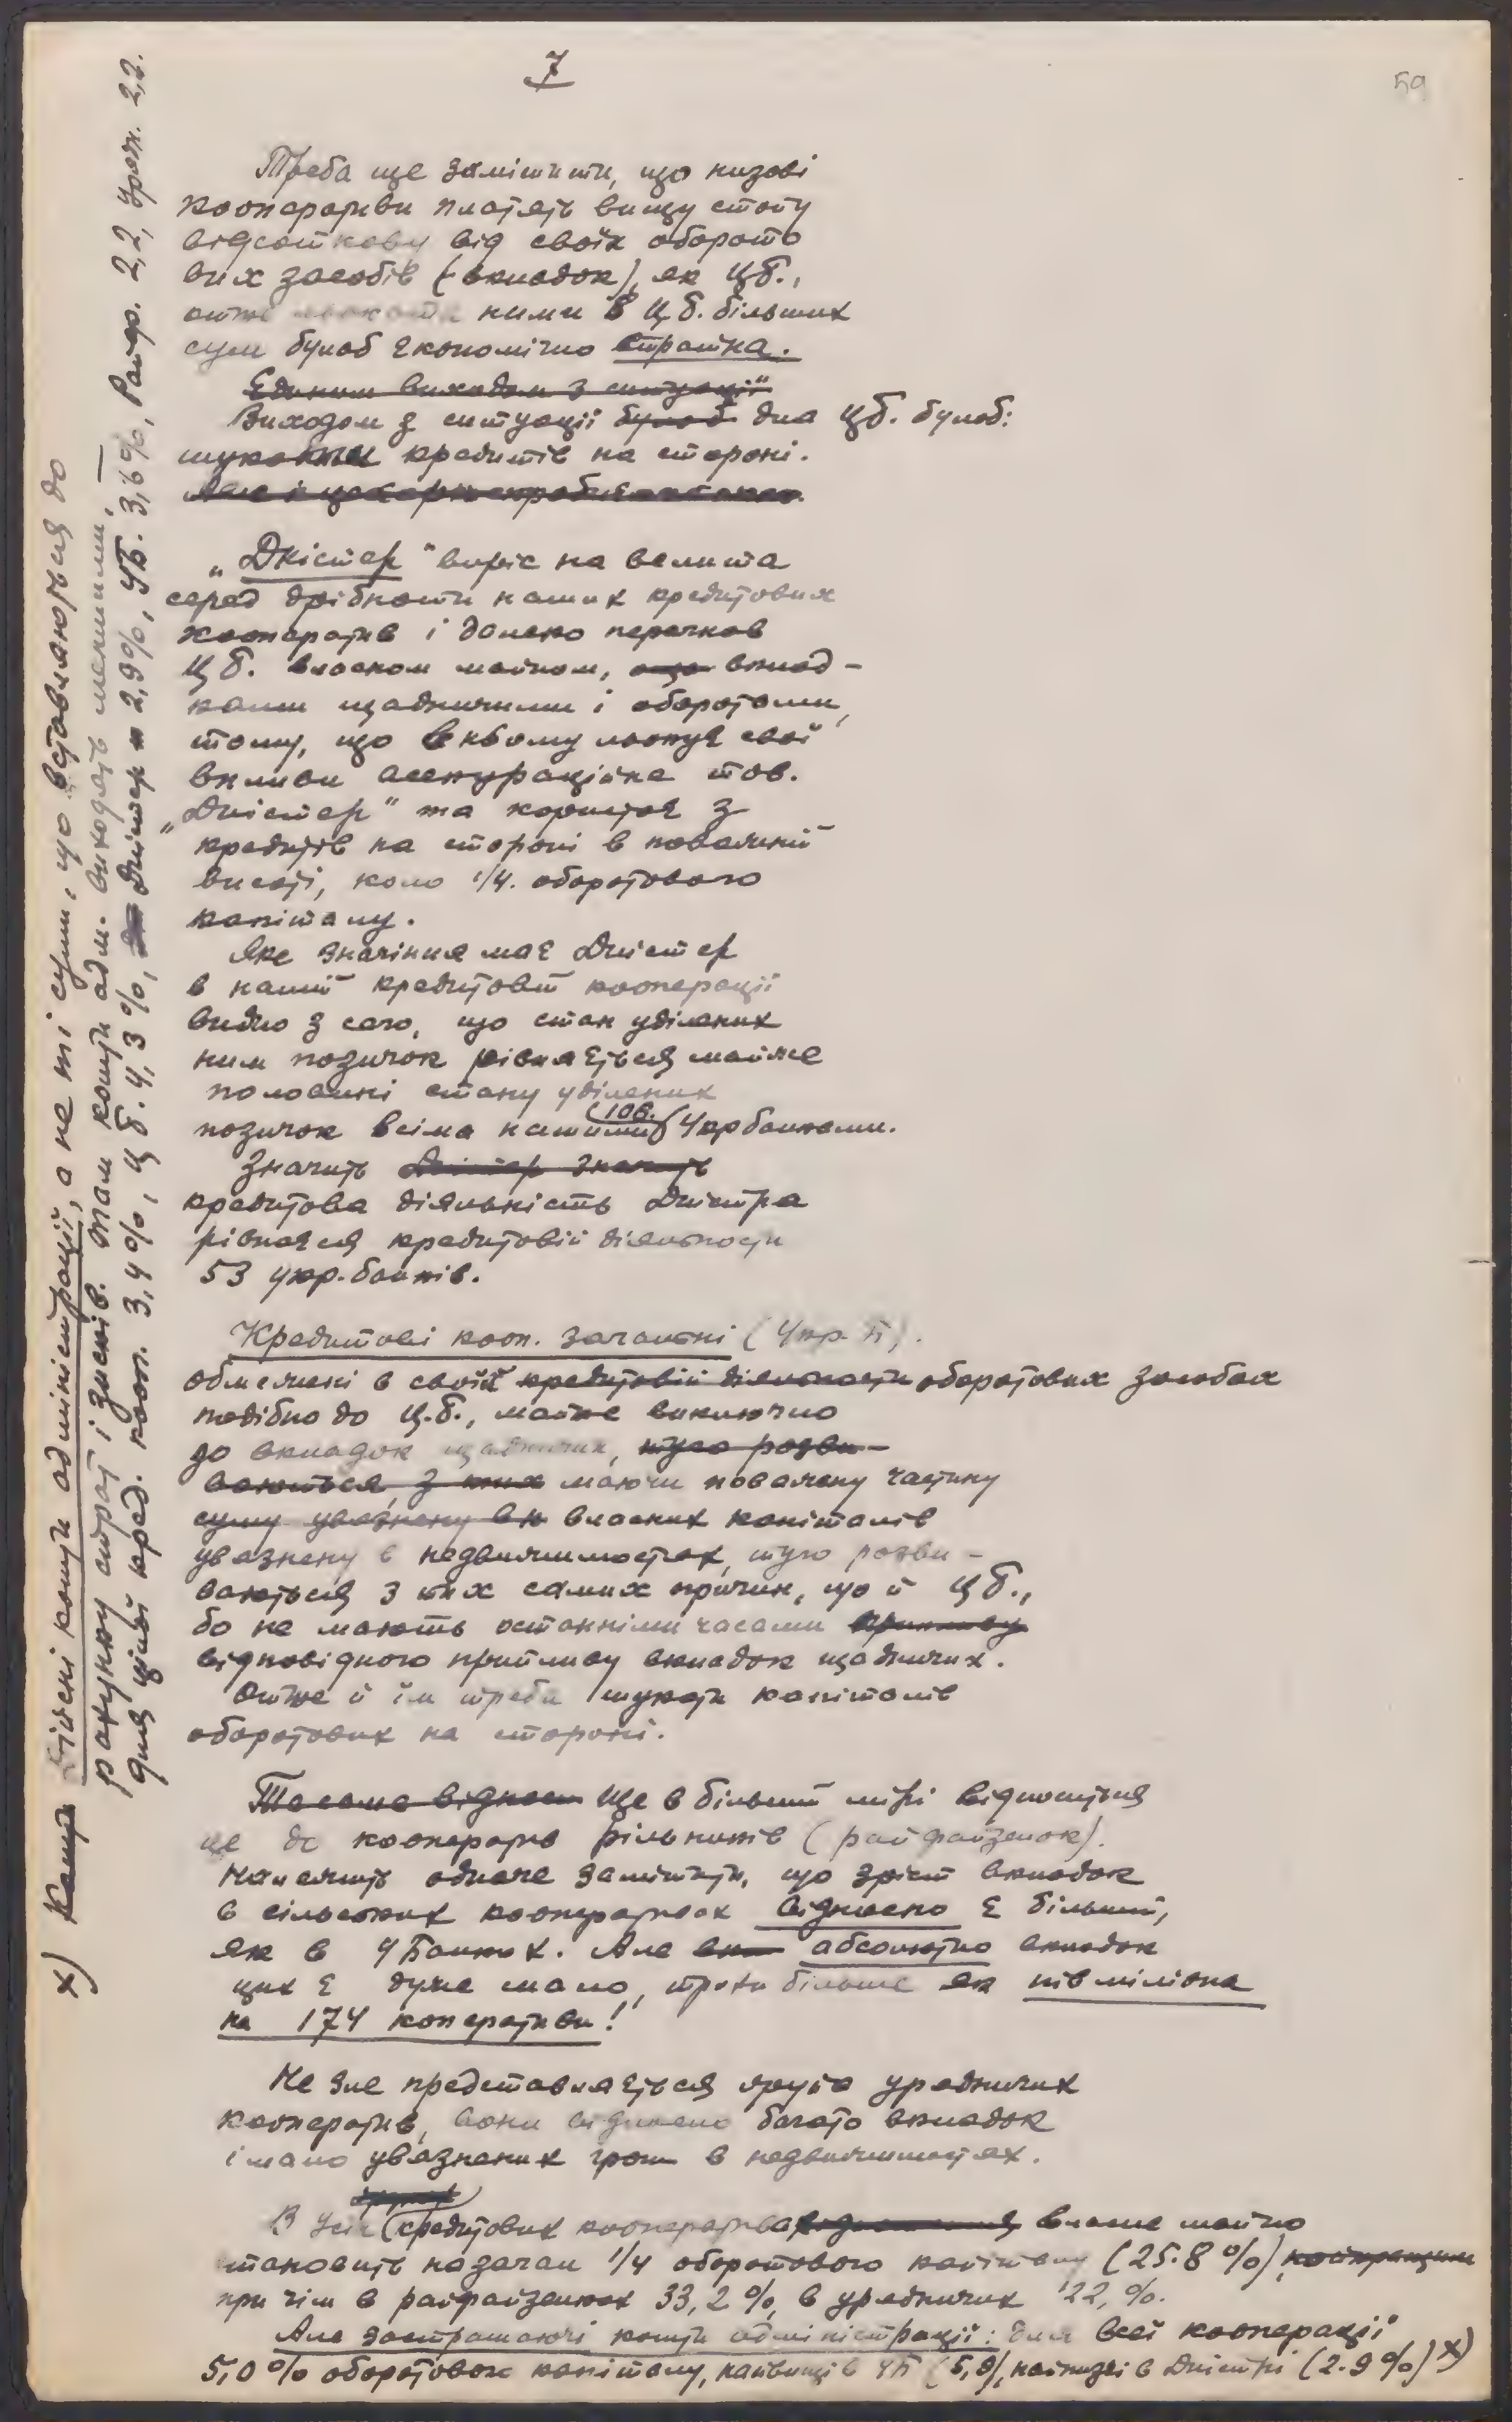 7
59
Треба ще замітити, що низові
кооперативи платять вищу стопу
відсоткову від своїх оборото
вих засобів (вкладок), як ЦБ.,
отже ними в Ц.Б. більших
сум булоб економічно стратна.
Єдиним виходом з ситуації
Виходом з ситуації булоб для ЦБ. булоб:
шукати кредитів на стороні.
„Дністер" виріс на велита
серед дрібноти наших кредитових
кооператив і далеко перегнав
ЦБ. власном майном, вклад-
ками щадничими і оборотами,
тому, що в ньому льокує свої
вплив асекураційне тов.
„Дністер" та користає з
кредитів на стороні в поважній
висоті, коло 1/4. оборотового
капіталу.
Яке значіння має Дністер
в нашій кредитовій кооперації
видно з сего, що стан уділених
ним позичок рівняється майже
половині стану уділених
позичок всіма нашими (106.) Укрбанками.
Значить Дністер значить
кредитова діяльність Дністра
рівнаєся кредитовій діяльности
53 укр.банків.
Кредитові кооп. загальні (Укр. Б).
обмежені в своїй кредитовій діяльности оборотових засобах
подібно до Ц.Б., майже виключно
до вкладок щадничих, туго розви-
ваються, з них маючи поважну частину
суму увязнену в н власних капіталів
увязнену в недвижимостях, туго розви-
ваються з тих самих причин, що й ЦБ.,
бо не мають останніми часами припливу
відповідного припливу вкладок щадничих.
Отже й їм треба шукати капіталів
оборотових на стороні.
Те саме віднос Ще в більшій мірі відноситься
це до кооператив рільників (райфайзенок).
Належить одначе замітити, що зріст вкладок
в сільських кооперативах відносно є більший,
як в УБанках. Але вк абсолютно вкладок
цих є дуже мало, трохи більше як пів міліона
на 174 коперативи!
Не зле представляється група урядничих
кооператив, вони відносно багато вкладок
і мало увязнених грош в недвижимостях.
В усіх кредитових кооперативах власне майно
становить назагал 1/4 оборотового капіталу (25.8%),
при чім в райфайзенках 33,2%, в урядничих 22,%.
Але застрашаючі кошти адміністрації: для всеї кооперації
5,0% оборотового капіталу, найвищі в УБ (5,8), найнизші в Дністрі (2.9%) x)
x) Кошт Дійсні кошти адміністрації, а не ті суми, що вставляються до
рахунку страт і зисків. Там кошти адм. виходять меншими, —
для цілої кред. кооп. 3,4%, ЦБ. 4,3%, Дністер 2,9%, УБ. 3,6%, Райф. 2,2, Уряд. 2,2.